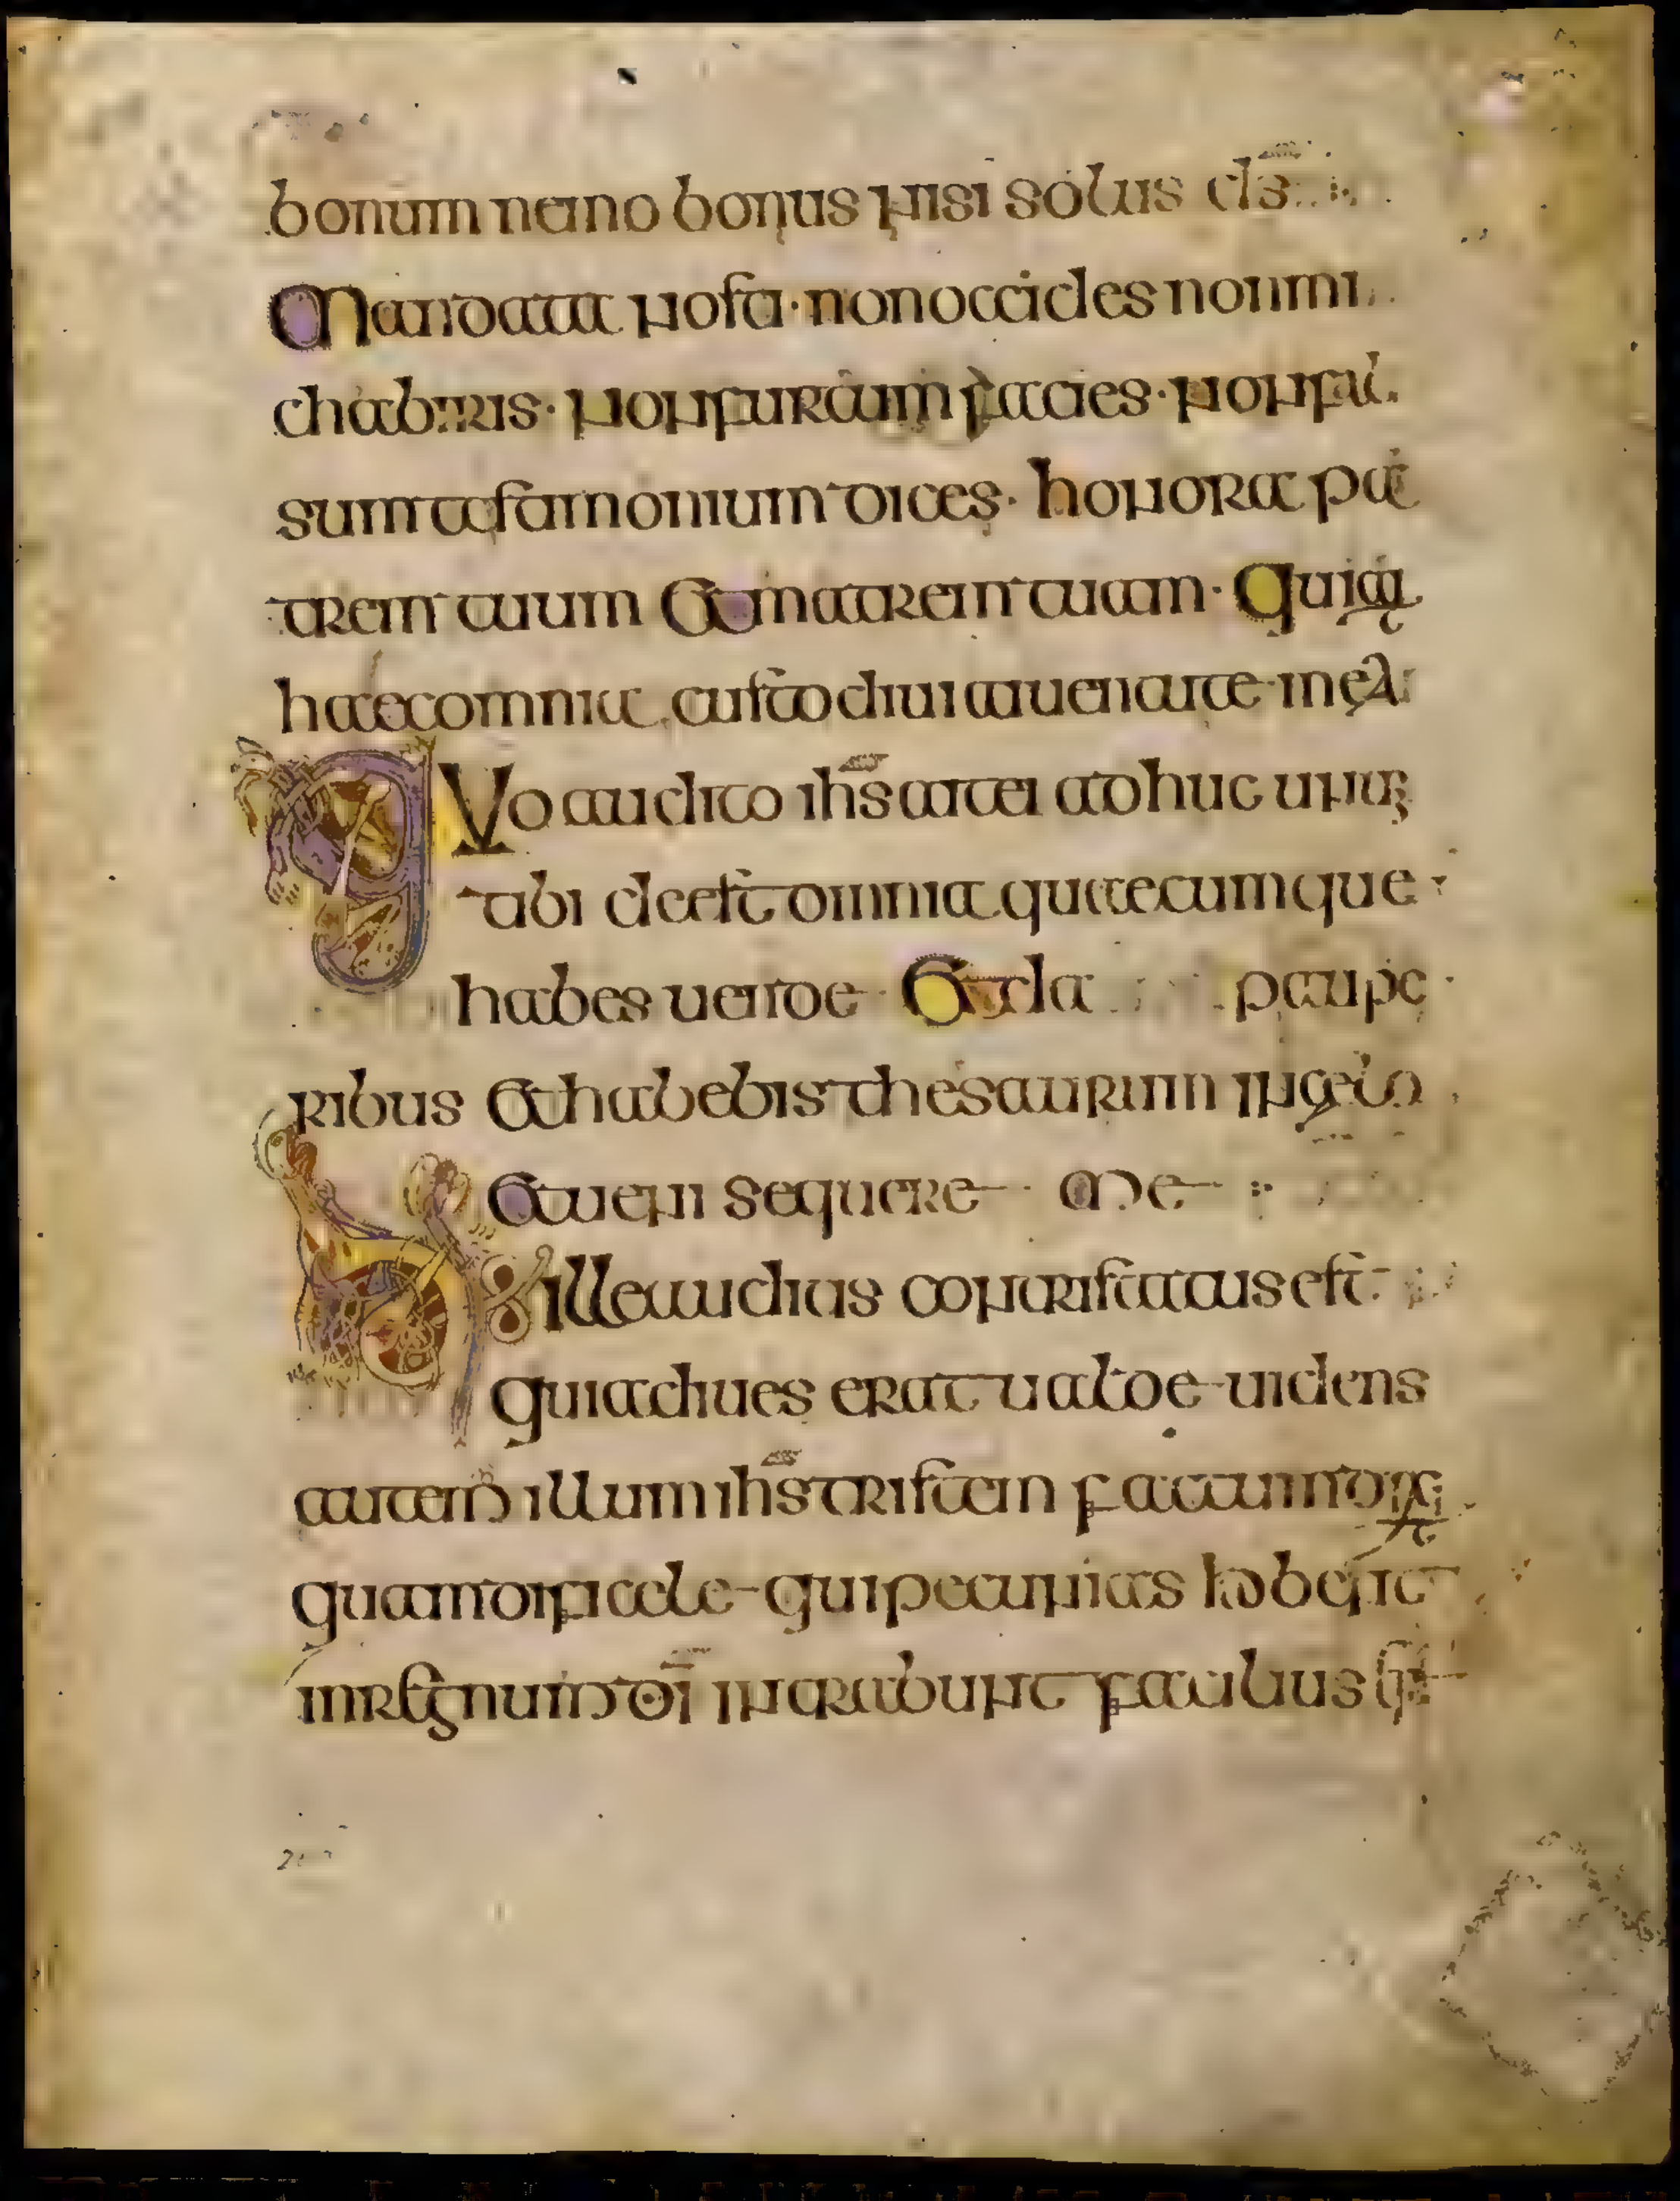 bonum nemo bonus nisi solus ds
Mandata nosti · non occides non mi
chaberis · non furtum facies · non fal
sum testimonium dices · honora pa
trem tuum et matrem tuam · Qui ait
haec omnia custodiui a iuuentute
Quo audito ihs ait ei adhuc unum
tibi deest omnia quaecumque
habes uende Et da paupe
ribus et habebis thesaurum in caelo
Et ueni sequere me
his ille auditis contristatus est
quia diues erat ualde uidens
autem illum ihs tristem factum dixit
quam difficile qui pecunias habent
in regnum di intrabunt facilius est